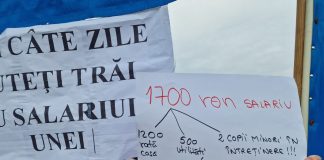 CÂTE ZILE
UTEȚI TRĂI
U SALARIUL
UNEI
1700 ron SALARIU
1200
rată
casă
500
utilități
2 COPII MINORI ÎN
ÎNTREȚINERE!!!